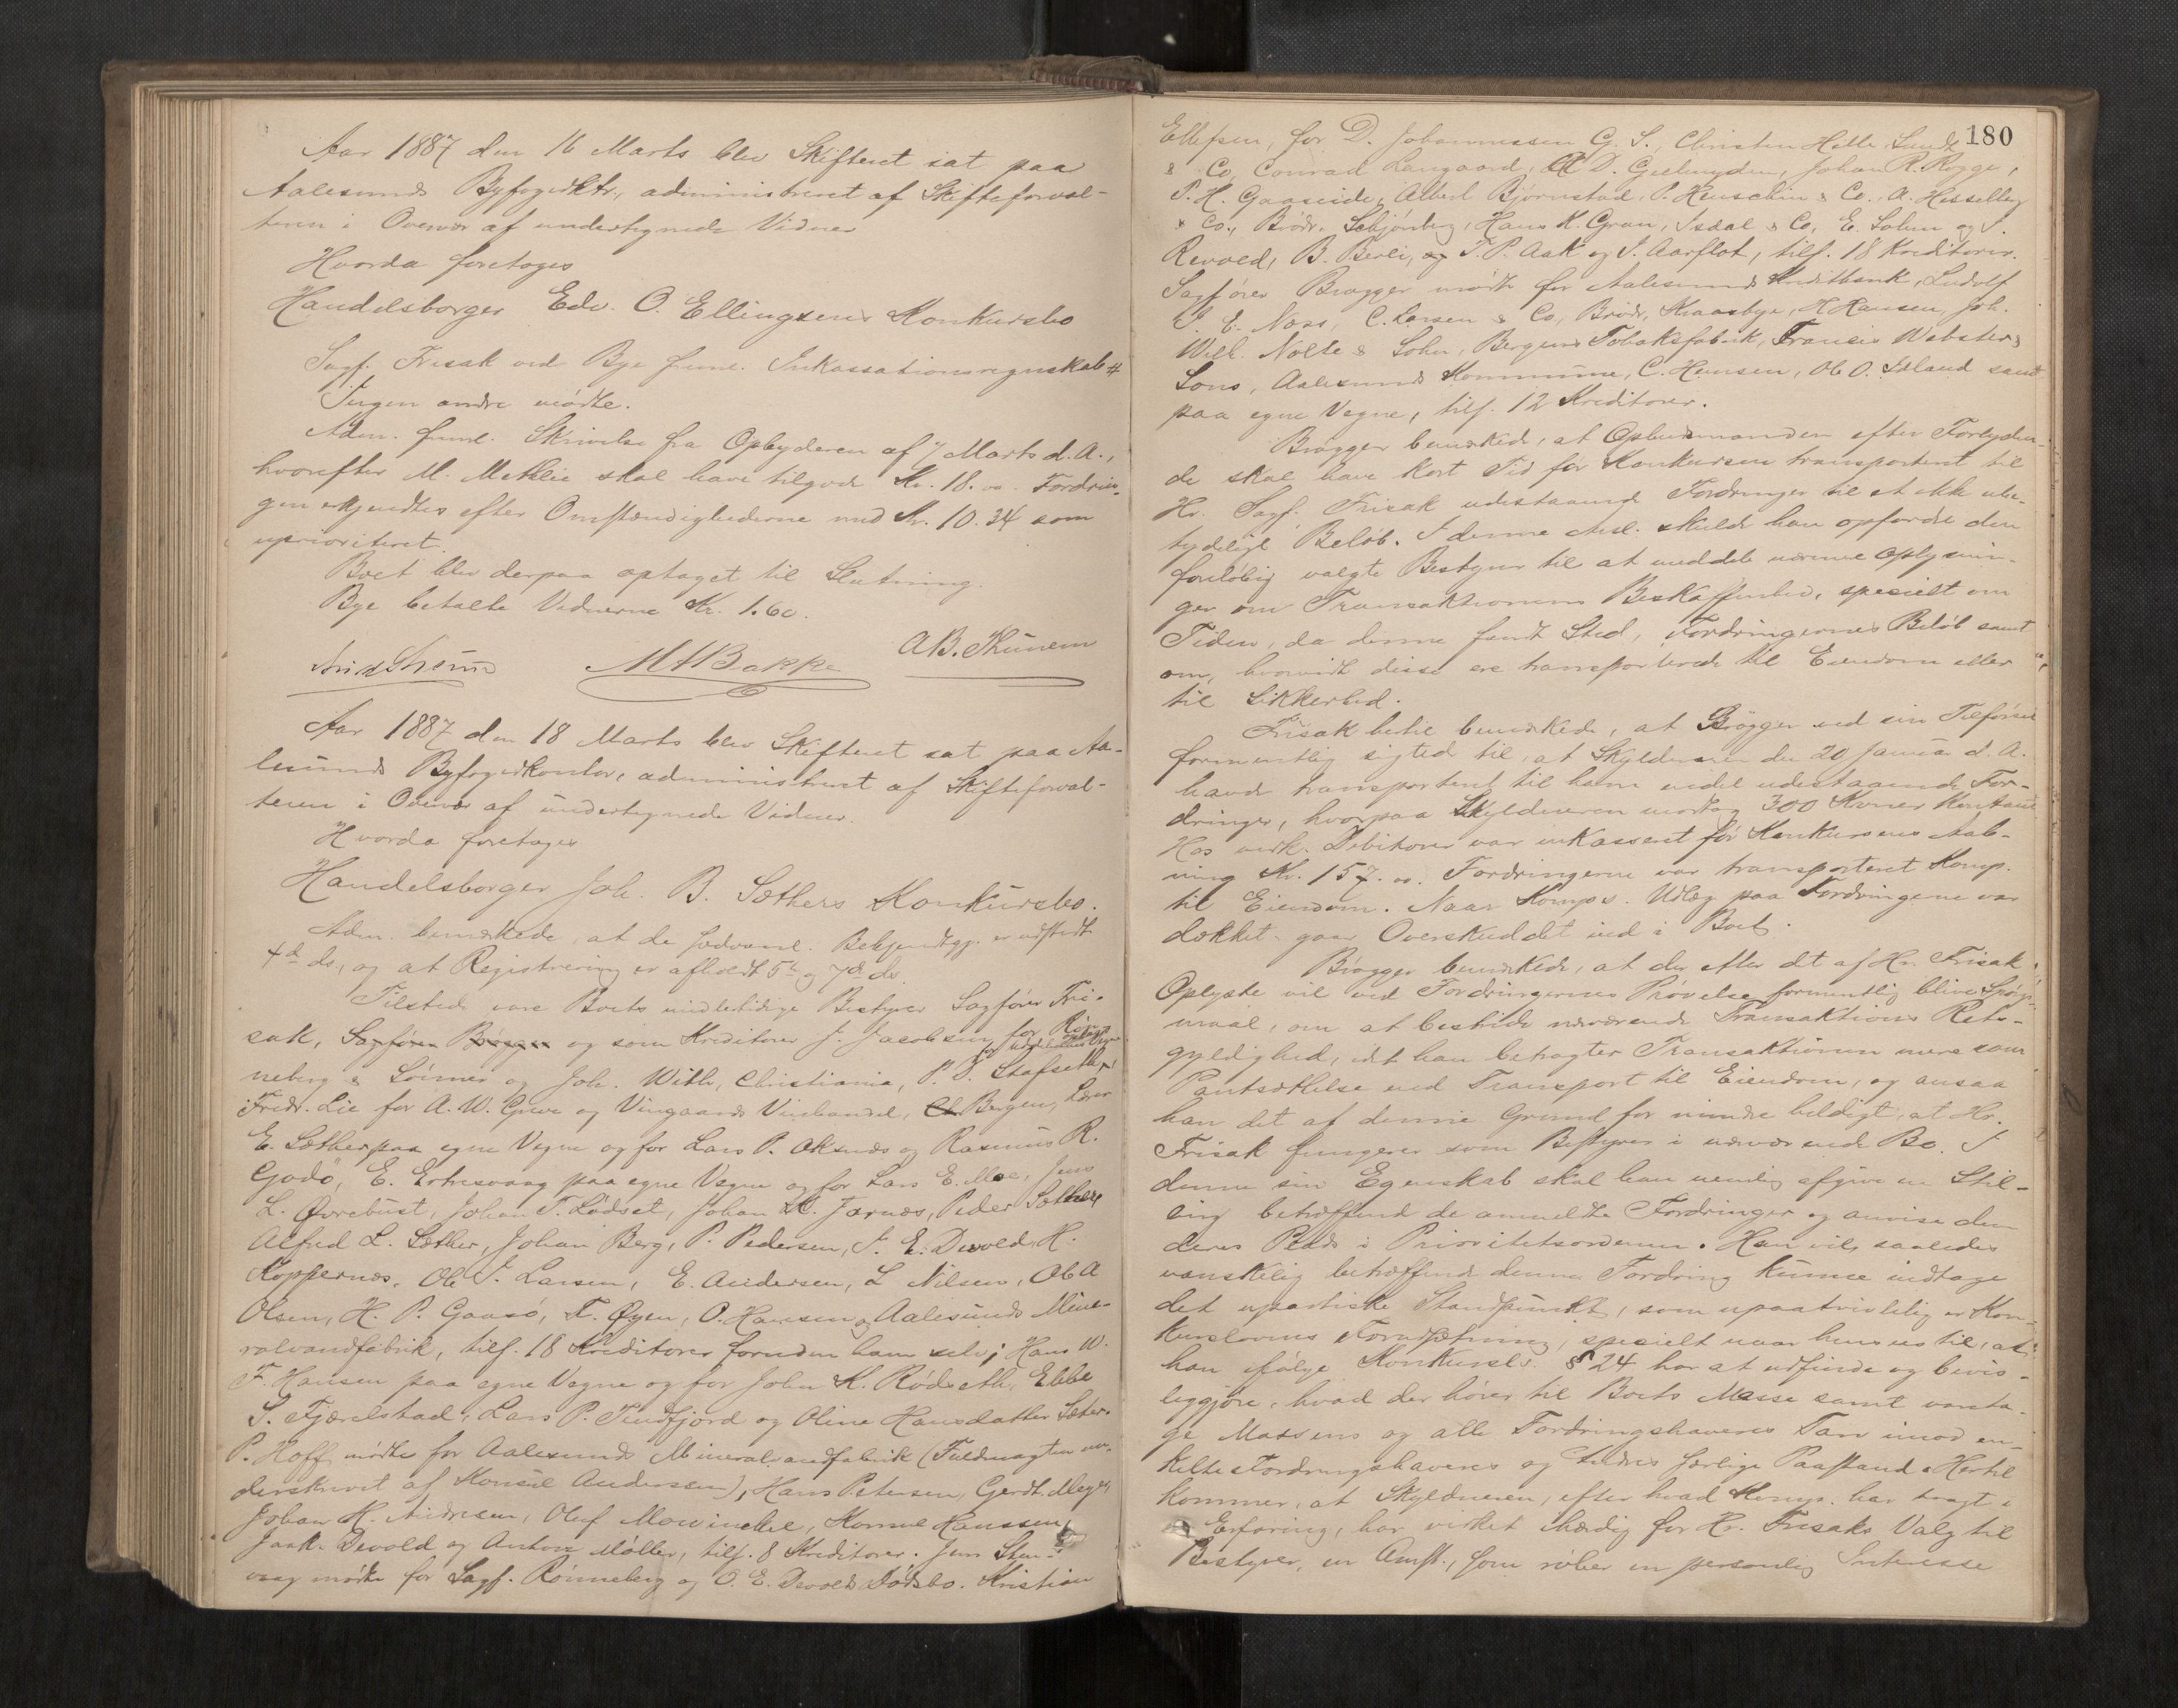 Aar 1887 den 16 Marts blev Skifteret sat paa
Aalesunds Byfogedktr., administreret af Skifteforval-
teren i Overvær af undertegnede Vidner
Hvorda foretoges
Handelsborger Edv. O. Ellingsens Konkursbo
Sagf. Frisak ved Bye freml. Inkassationsregnskab #
Ingen andre mødte.
Adm. freml. Skrivelse fra Opbyderen af 7 Marts d. A.,
hvorefter M. Methlie skal have tilgode Kr. 18.00. Fordrin-
gen erkjendtes efter Omstændighederne med Kr. 10.34 som
uprioriteret.
Boet blev derpaa optaget til Slutning.
Bye betalte Vidnerne Kr. 1.60.
MABakke A.B. Thunem
Aar 1887 den 18 Marts blev Skifteret sat paa Aa-
lesunds Byfogedkontor, administreret af Skifteforval-
teren i Overvær af undertegnede Vidner.
Hvorda foretoges
Handelsborger Joh. B. Sæthers Konkursbo.
Adm. bemærkede, at de sædvanl. Bekjendtgj. er udstedt
4de ds., og at Registrering er afholdt 5te og 7de ds.
Tilstede vare Boets midlertidige Bestyrer Sagfører Fri-
sak, Sagfører Brøgger og som Kreditorer J. Jacobsen for Røn-
neberg & Sønner og Joh. With, Christiania, P. J. Stafseth,
Fredr. Lie for A. W. Greve og Vingaards Vinhandel, Bergen, Lærer
E. Sæther paa egne Vegne og for Lars P. Aksnæs og Rasmus R.
Godø, E. Ertresvaag paa egne Vegne og for Lars E. Moe, Jens
L. Øvrebust, Johan T. Lødset, Johan K. Jarnæs, Peder Sæther,
Alfred L. Sæther, Johan Berg, P. Pedersen, J. E. Devold, H.
Koppernæs, Ole J. Larsen, E. Andersen, L Nilsen, Ole A
Olsen, H. P. Gaasø, T. Øyen, O. Hansen og Aalesunds Mine-
ralvandfabrik, tils. 18 Kreditorer foruden ham selv; Hans W.
F. Hansen paa egne Vegne og for John K. Rødseth, Ebbe
S. Fjærelstad, Lars P. Tindfjord og Oline Hansdatter Sæter.
P. Hoff mødte for Aalesunds Mineralvandfabrik (Fuldmagten un-
derskrevet af Konsul Anderssen), Hans Petersen, Gerdt Meyer,
Johan H. Andresen, Oluf Mowinckel, Kornel Hanssen,
Jaak. Devold og Anton Møller, tils. 8 Kreditorer. Jens Sten-
vaag mødte for Sagf. Rønneberg og O. E. Devolds Dødsbo. Kristian
180
Ellefsen, for D. Johannessen G. S., Christen Helle, Sundt
& Co, Conrad Langaard, D. Geelmuyden, Johan R. Rogge,
P. H. Gaaseide, Albert Bjørnstad, P. Henschien & Co., A. Hesselberg
& Co., Brødr. Schjønberg, Hans K. Gran, Isdal & Co, E. Sohm og J.
Revold, B. Berli, og T. P. Aak og J. Aarflot, tils. 18 Kreditorer.
Sagfører Brøgger mødte for Aalesunds Kreditbank, Ludolf
J. E. Næss, C. Larsen & Co, Brødr. Kraasbye, H Hansen, Joh.
Wilh. Nolte & Sohn, Bergens Tobaksfabrik, Francis Webster &
Sons, Aalesunds Kommune, C. Hansen, Ole O. Idland samt
paa egne Vegne, tils. 12 Kreditorer.
Brøgger bemærkede, at Opbudsmanden efter Forlyden-
de skal have kort Tid før Konkursen transporteret til
Hr. Sagf. Frisak udestaaende Fordringer til et ikke ube-
tydeligt Beløb. I denne Anl. skulde han opfordre den
foreløbig valgte Bestyrer til at meddele nærmere Oplysnin-
ger om Transaktionens Beskaffenhed, specielt om
Tiden, da denne fandt Sted, Fordringernes Beløb samt
om, hvorvidt disse ere transporterede til Eiendom eller
til Sikkerhed.
Frisak hertil bemærkede, at Brøgger ved sin Tilførsel
formentlig sigted til, at Skyldneren den 20 Januar d. A.
havde transporteret til ham endel udestaaende For-
dringer, hvorpaa Skyldneren modtog 300 Kroner kontant
Hos vedk. Debitorer var inkasseret før Konkursens Aab-
ning Kr. 157.00. Fordringerne var transporteret Komp.
til Eiendom. Naar Komps. Udlæg paa Fordringerne var
dækket gaar Overskuddet ind i Boet.
Brøgger bemærkede, at der efter det af Hr. Frisak
Oplyste vil ved Fordringernes Prøvelse formentlig blive Spørgs-
maal, om at bestride nærværende Transaktions Rets-
gyldighed, idet han betragter Transaktionen mere som
Pantsættelse end Transport til Eiendom, og ansaa
han det af denne Grund for mindre heldigt, at Hr.
Frisak fungerer som Bestyrer i nærværende Bo. I
denne sin Egenskab skal han nemlig afgive en Stil-
ling betræffende de anmeldte Fordringer og anvise dem
deres Plads i Prioritetsordenen. Han vil saaledes
vanskelig betræffende denne Fordring kunne indtage
det upartiske Standpunkt, som upaatvivlelig er Kon-
kurslovens Forudsætning, specielt naar henses til, at
han ifølge Konkursl. § 24 har at udfinde og bevis-
liggjøre, hvad der hører til Boets Masse samt vareta-
ge Massens og alle Fordringshaveres Tarv imod en-
kelte Fordringshaveres og Andres særlige Paastand. Hertil
kommer, at Skyldneren, efter hvad Komp. har bragt i
Erfaring, har virket ihærdig for Hr. Frisaks Valg til
Bestyrer, en Omst., som røber en personlig Interesse